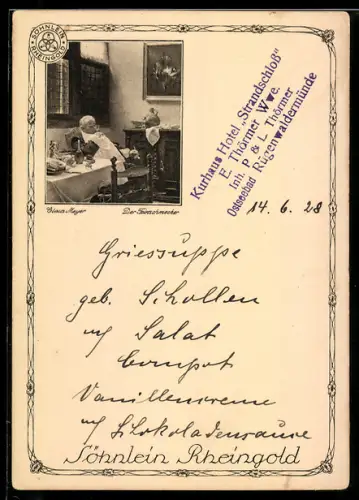 SÖHNLEIN
RHEINGOLD
Kurhaus Hotel „Strandschloß“
E. Thörmer Wwe.
Inh. P. & L. Thörmer
Ostseebad Rügenwaldermünde
Claus Meyer Der Feinschmecker
14. 6. 28
Griessuppe
geb. Schollen
m/ Salat
Compot
Vanillencreme
m/ Schokoladensauce
Söhnlein Rheingold